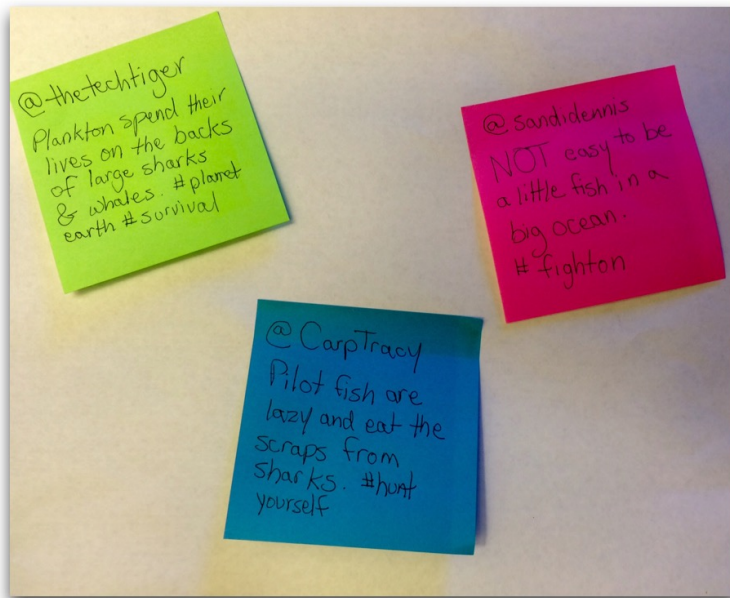 @thetechtiger
Plankton spend their
lives on the backs
of large sharks
& whales. #planet
earth #survival
@sandidennis
NOT easy to be
a little fish in a
big ocean.
# fighton
@CarpTracy
Pilot fish are
lazy and eat the
scraps from
sharks. #hunt
yourself